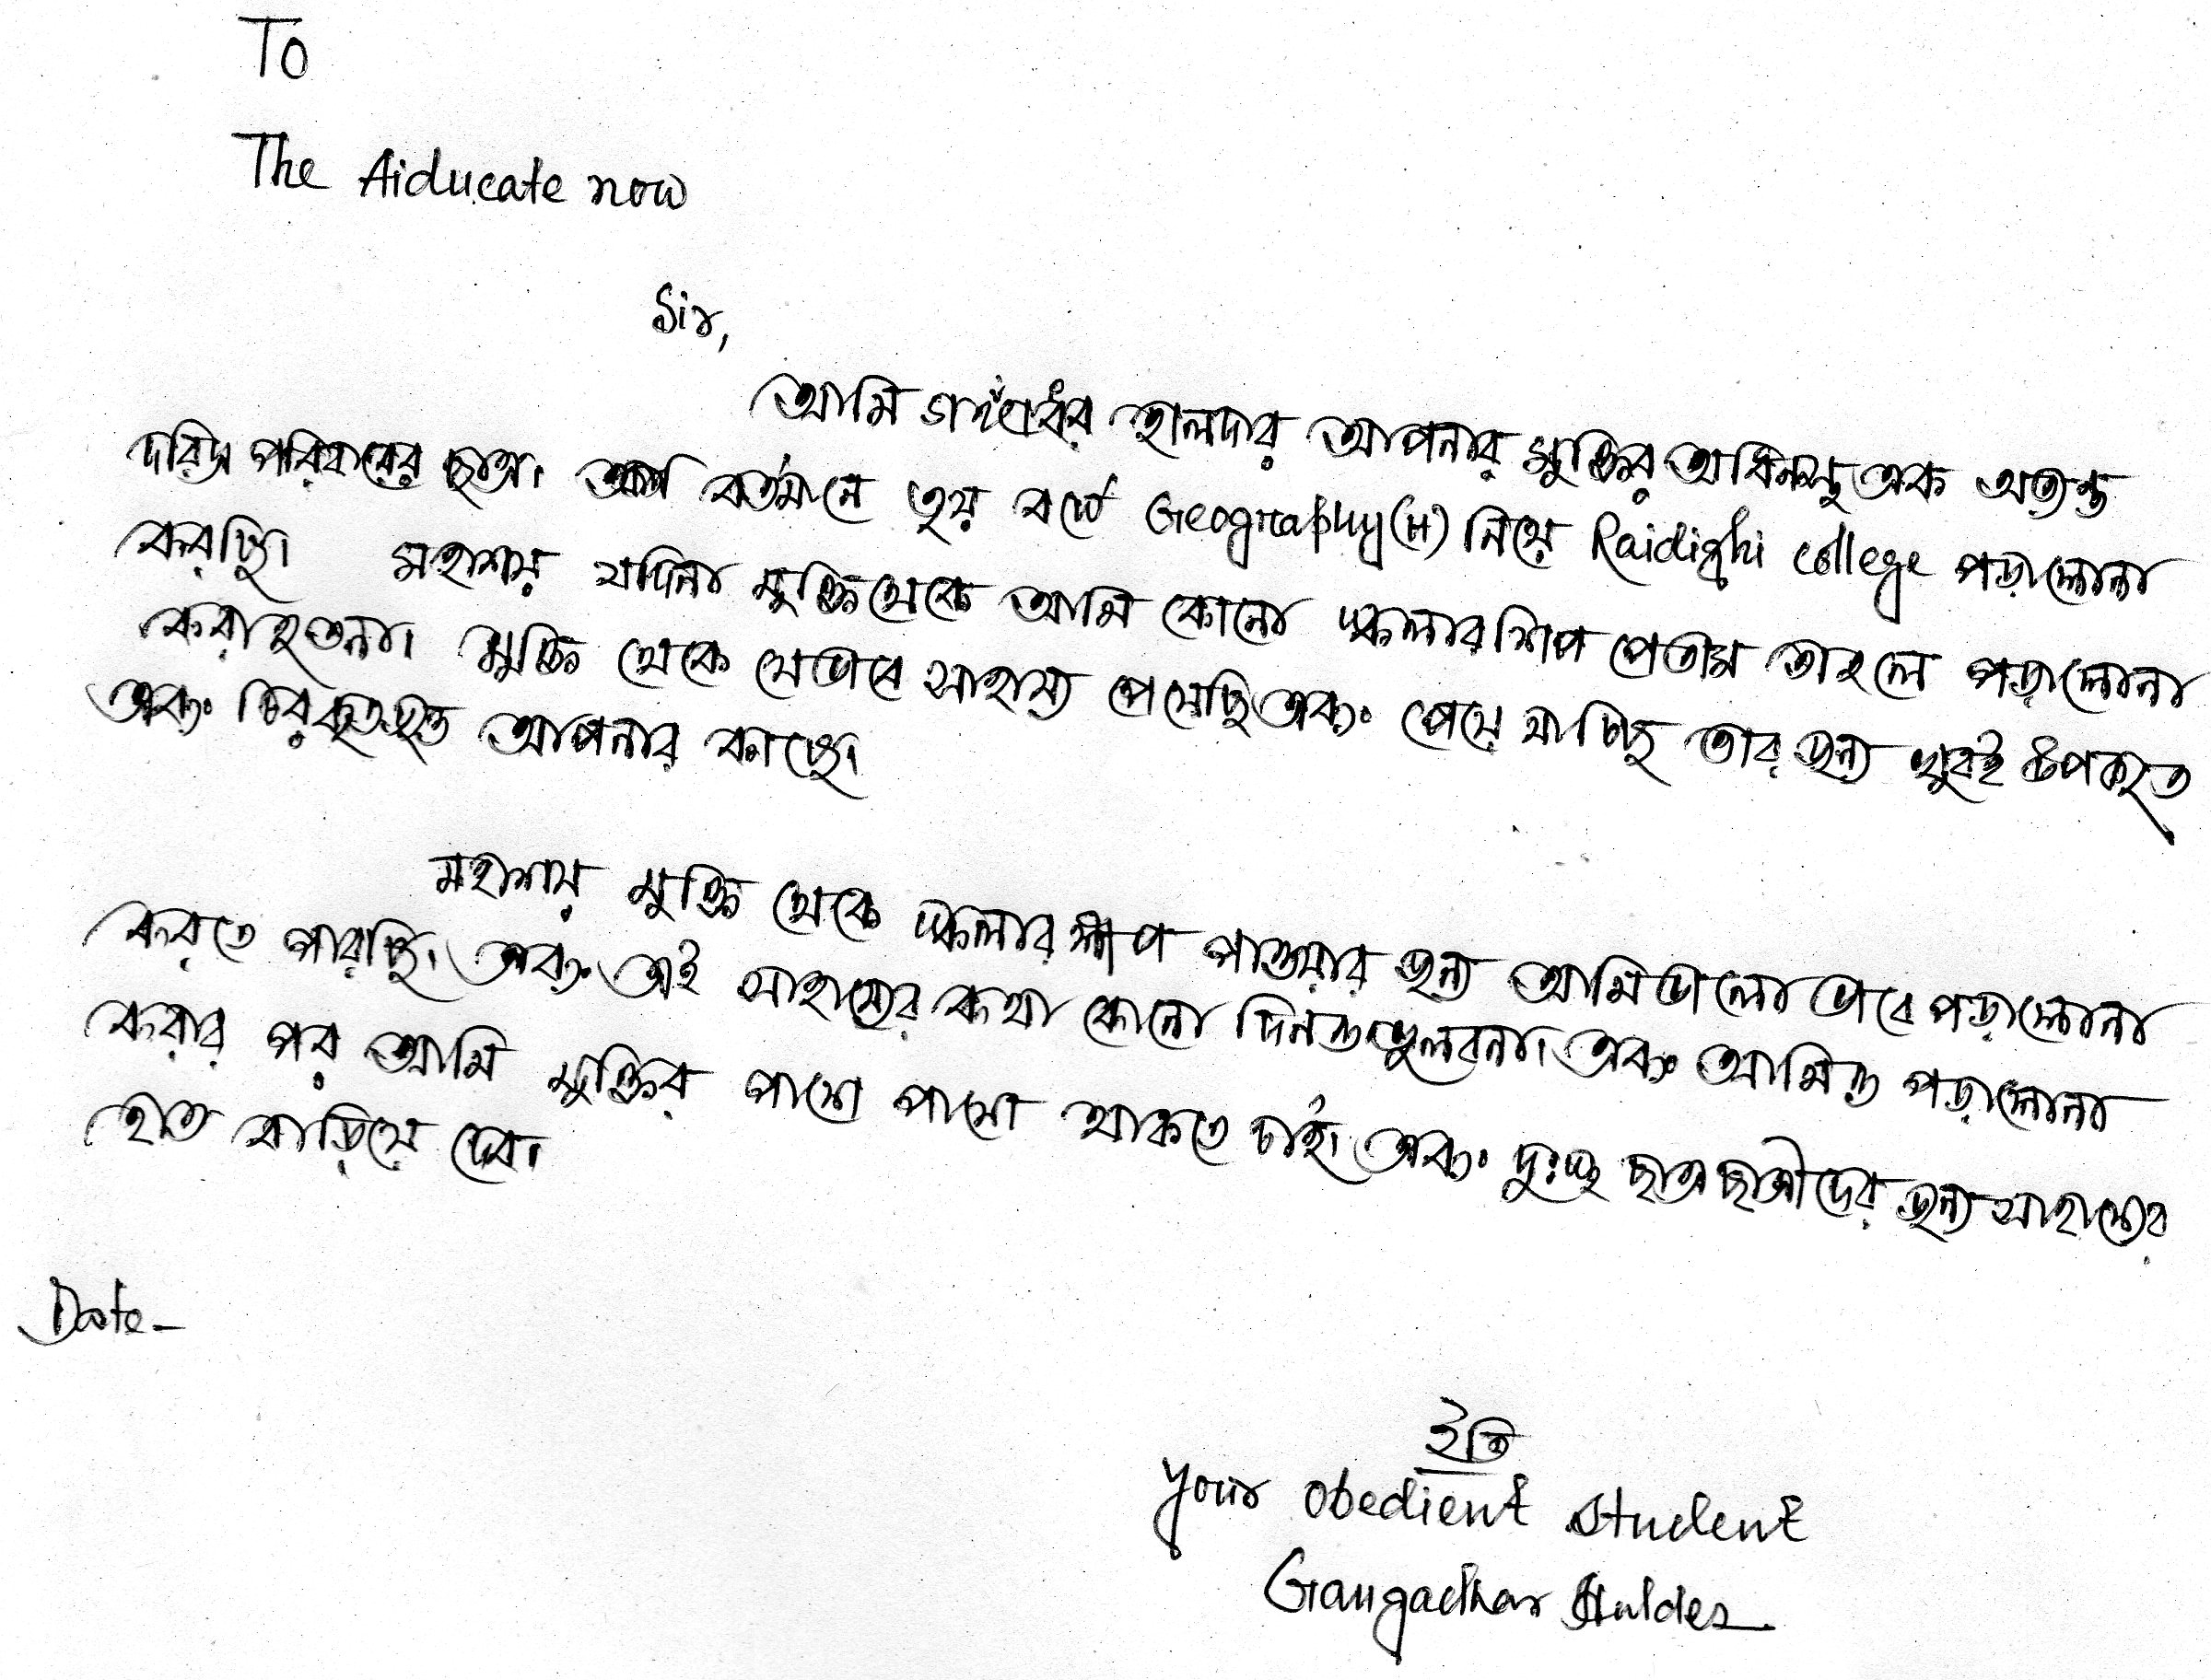 To
The Aiducate now
Sir,
আমি গঙ্গাধর হালদার আপনার মুক্তির অধিনস্থ এক অত্যন্ত
দরিদ্র পরিবারের ছাত্র। আমি বর্তমানে তৃয় বর্ষে Geography(H) নিয়ে Raidighi college পড়াশোনা
করছি। মহাশয় যদিনা মুক্তি থেকে আমি কোনো স্কলারশিপ পেতাম তাহলে পড়াশোনা
করা হতনা। মুক্তি থেকে যেভাবে সাহায্য পেয়েছি এবং পেয়ে যাচ্ছি তার জন্য খুবই উপকৃত
এবং চিরকৃতজ্ঞ আপনার কাছে।
মহাশয় মুক্তি থেকে স্কলারশীপ পাওয়ার জন্য আমি ভালো ভাবে পড়াশোনা
করতে পারছি। এবং এই সাহায্যের কথা কোনো দিনও ভুলবনা। এবং আমিও পড়াশোনা
করার পর আমি মুক্তির পাশে পাশে থাকতে চাই। এবং দুঃস্থ ছাত্রছাত্রীদের জন্য সাহায্যের
হাত বাড়িয়ে দেব।
Date-
ইতি
Your obedient student
Gangadhar Halder